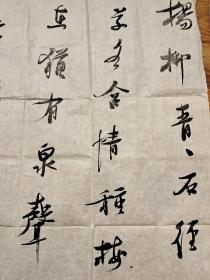 楊柳青青石徑
含情種梅
猶有泉聲